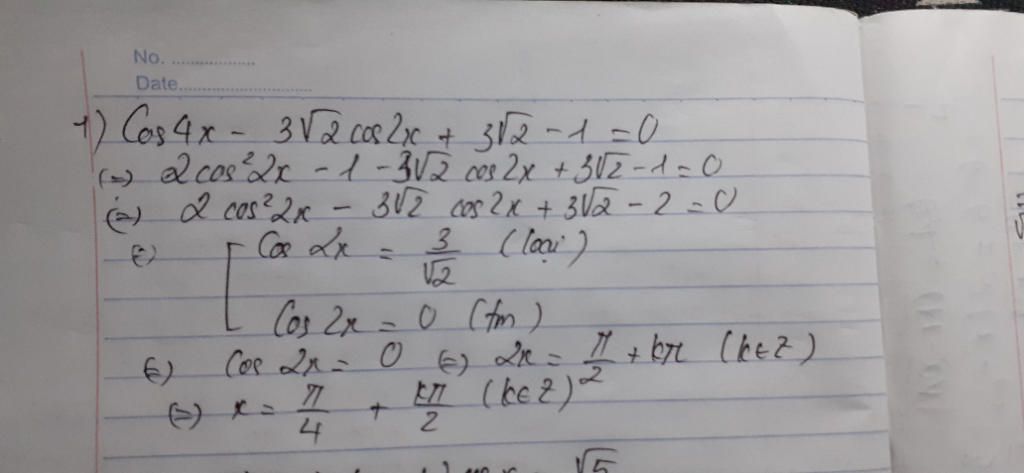 No. ................
Date..........................
1) Cos4x - 3√2 cos2x + 3√2 - 1 = 0
(=) 2cos²2x - 1 - 3√2 cos2x + 3√2 - 1 = 0
(=) 2 cos²2x - 3√2 cos2x + 3√2 - 2 = 0
(=) [ Cos 2x = 3/√2 (loại)
Cos 2x = 0 (tm)
(=) Cos 2x = 0 (=) 2x = π/2 + kπ (k∈Z)
(=) x = π/4 + kπ/2 (k∈Z)
√5